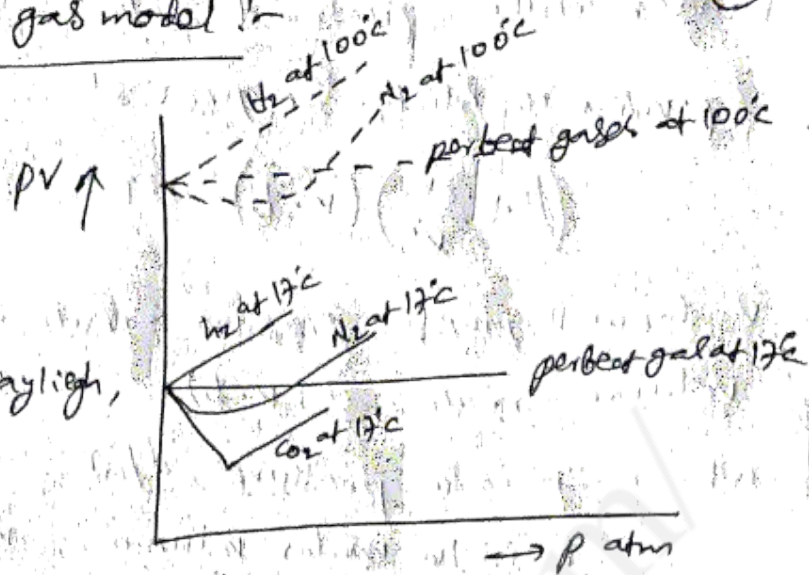 gas model :-
H2 at 100°C
N2 at 100°C
perbect gases at 100°C
PV ↑
h2 at 17°C
N2 at 17°C
perbect gas at 17°C
ayliegh,
CO2 at 17°C
→ P atm